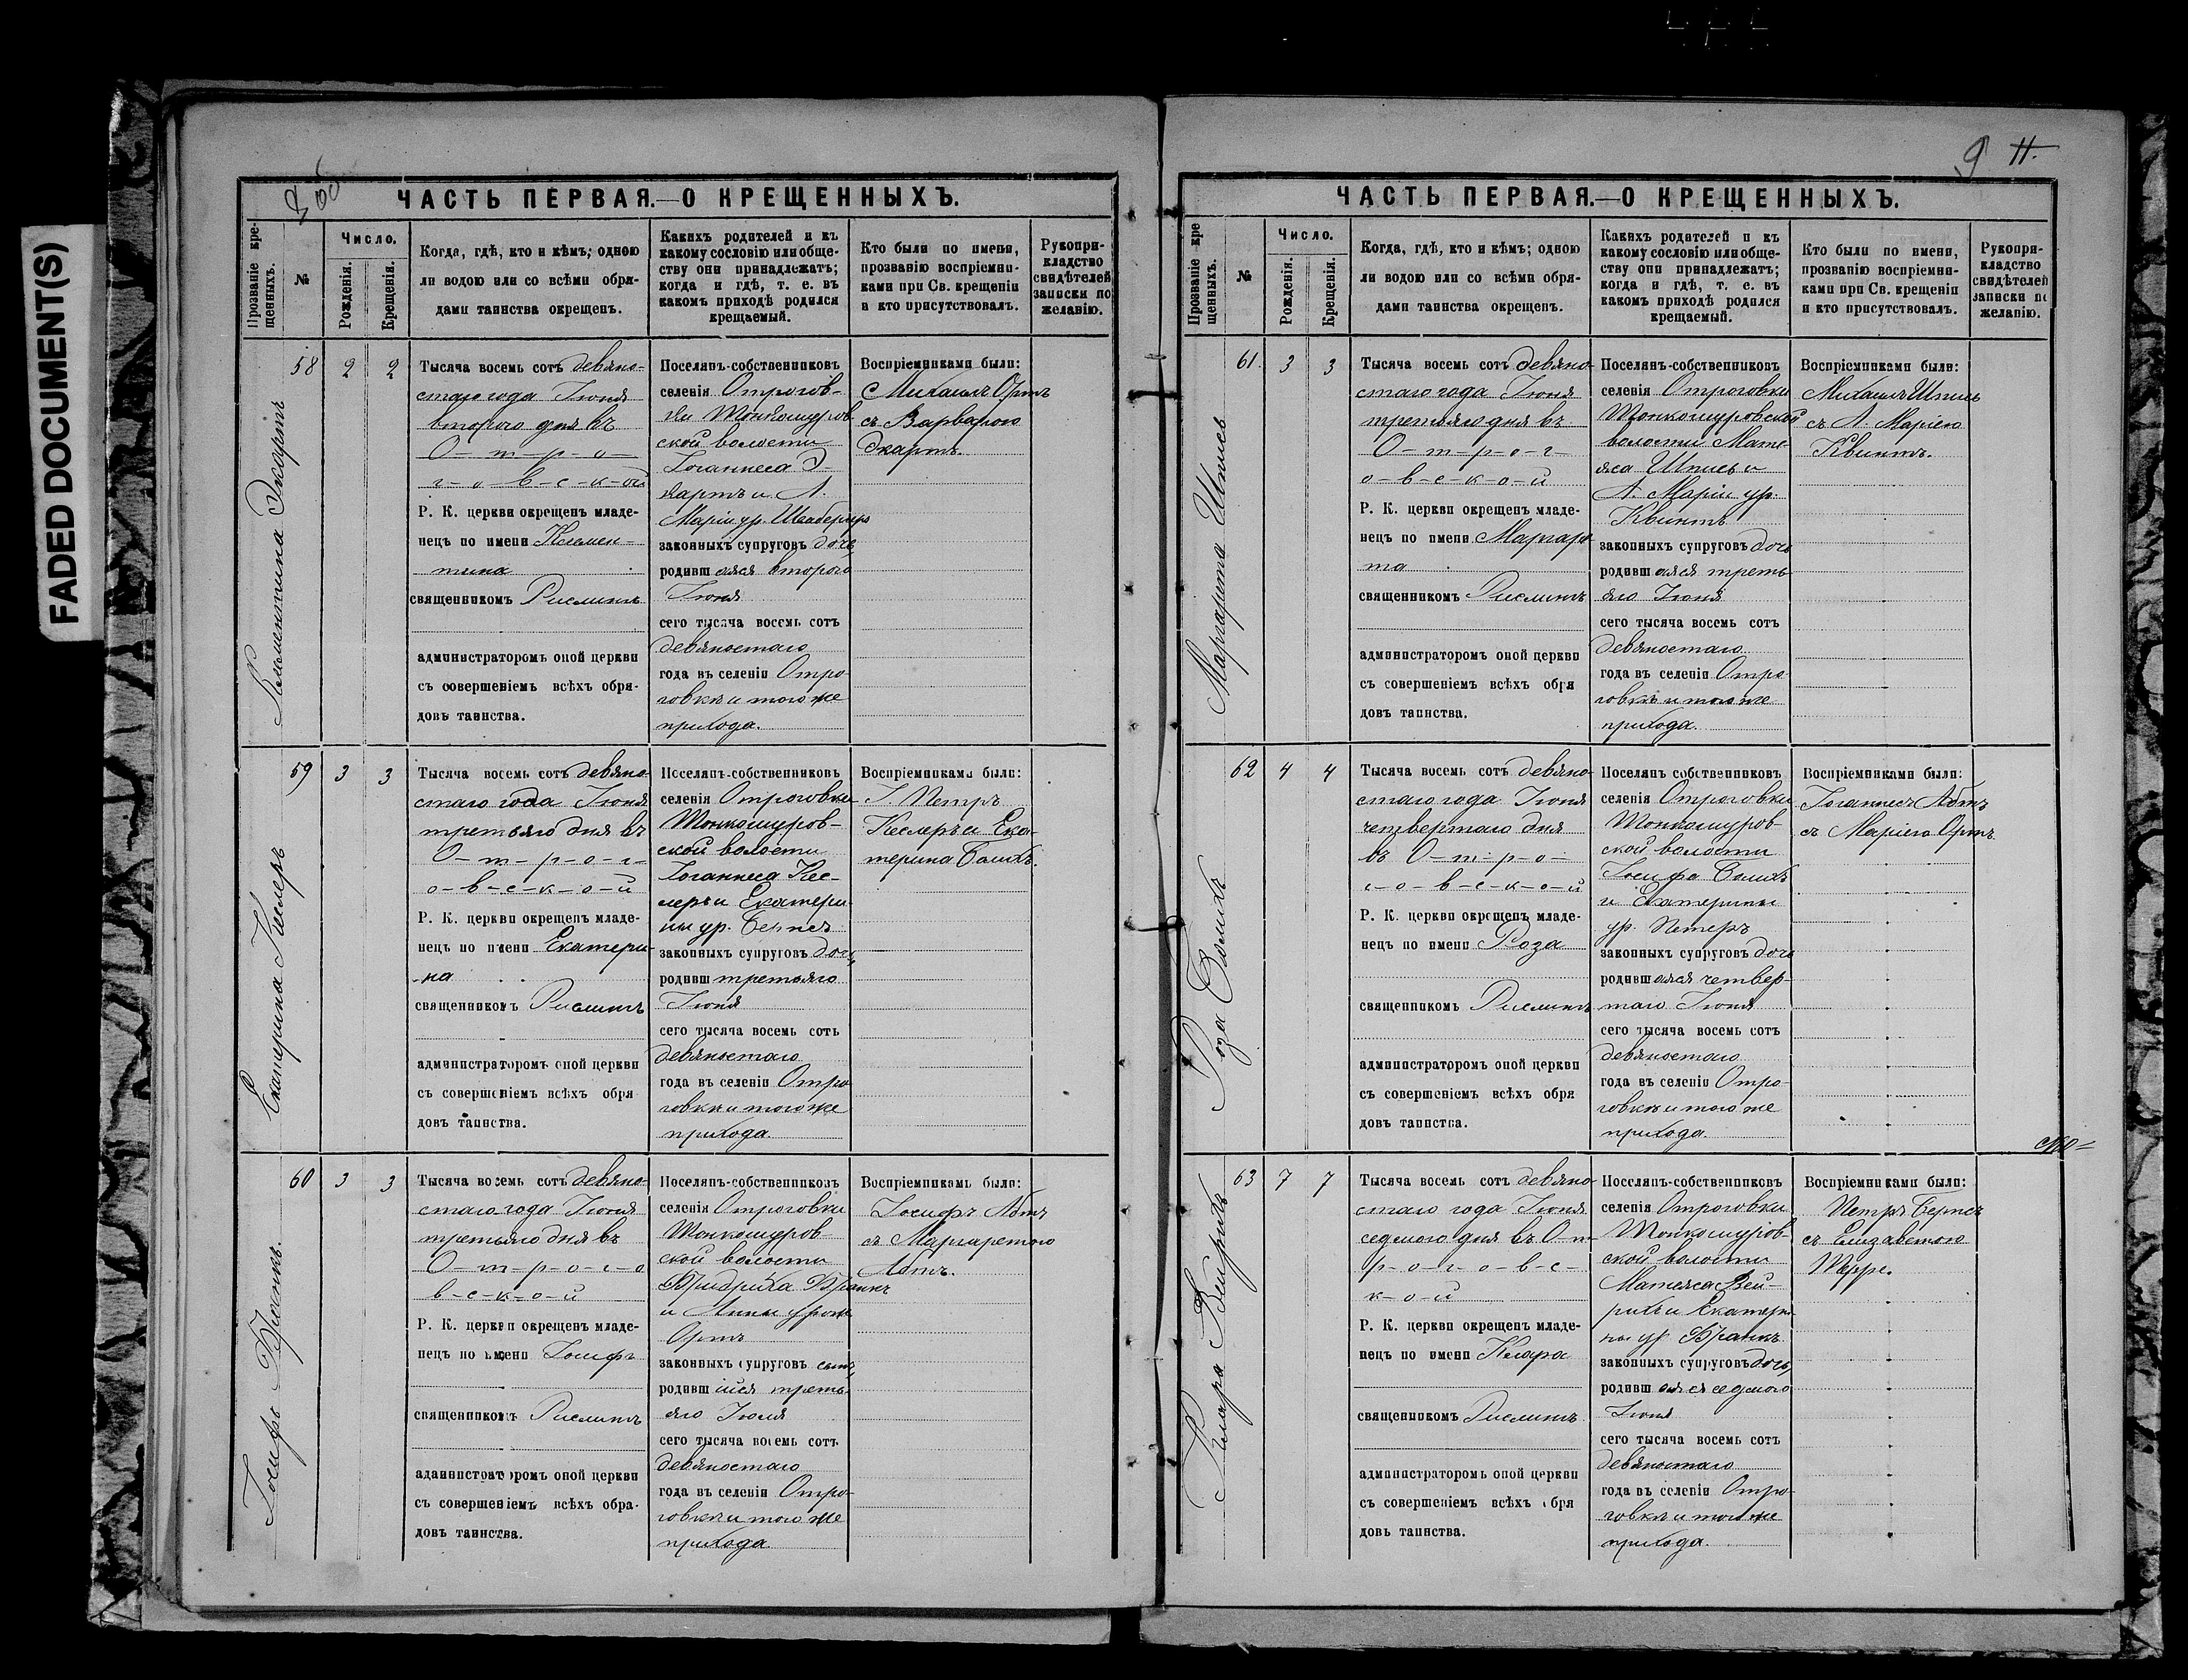 FADED DOCUMENT(S)
8 об
ЧАСТЬ ПЕРВАЯ.—О КРЕЩЕННЫХЪ.
Прозваніе кре-
щенныхъ.
№
Число.
Рожденія.
Крещенія.
Когда, гдѣ, кто и кѣмъ; одною
ли водою или со всѣми обря-
дами таинства окрещенъ.
Какихъ родителей и къ
какому сословію или обще-
ству они принадлежатъ;
когда и гдѣ, т. е. въ
какомъ приходѣ родился
крещаемый.
Кто были по имени,
прозванію воспріемни-
ками при Св. крещеніи
и кто присутствовалъ.
Рукопри-
кладство
свидѣтелей
записки по
желанію.
Клементина Экартъ
58 2 2
Тысяча восемь сотъ девяно-
стаго года Іюня
второго дня въ
О-т-р-о-
г-о-в-с-к-ой
Р. К. церкви окрещенъ младе-
нецъ по имени Клемен-
тина
священникомъ Рислингъ
администраторомъ оной церкви
съ совершеніемъ всѣхъ обря-
довъ таинства.
Поселянъ-собственниковъ
селенія Отрогов-
ки Тонкошуров-
ской волости
Іоганнеса Э-
картъ и А.
Маріи ур.
законныхъ супруговъ дочь
родивш аяся второго
Іюня
сего тысяча восемь сотъ
девяностаго
года въ селеніи Отро-
говкѣ и того же
прихода.
Воспріемниками были:
Михаилъ Ортъ
съ Варварою
Экартъ.
Екатерина Кеслеръ
59 3 3
Тысяча восемь сотъ девяно-
стаго года Іюня
третьяго дня въ
О-т-р-о-г-
о-в-с-к-о-й
Р. К. церкви окрещенъ младе-
нецъ по имени Екатери-
на
священникомъ Рислингъ
администраторомъ оной церкви
съ совершеніемъ всѣхъ обря
довъ таинства.
Поселянъ-собственниковъ
селенія Отроговки
Тонкошуров-
ской волости
Іоганнеса Кес-
леръ и Екатери-
ны ур. Бернсъ
законныхъ супруговъ дочь
родивш третьяго
Іюня
сего тысяча восемь сотъ
девяностаго
года въ селеніи Отро
говкѣ и того же
прихода.
Воспріемниками были:
І. Петръ
Кеслеръ и Ека-
терина Бомкъ.
Іосифъ Франкъ.
60 3 3
Тысяча восемь сотъ девяно-
стаго года Іюня
третьяго дня въ
О-т-р-о-г-о
в-с-к-о-й
Р. К. церкви окрещенъ младе-
нецъ по имени Іосифъ
священникомъ Рислингъ
администраторомъ оной церкви
съ совершеніемъ всѣхъ обря-
довъ таинства.
Поселянъ-собственниковъ
селенія Отроговки
Тонкошуров-
ской волости
Фридриха Франкъ
и Анны урож
Ортъ
законныхъ супруговъ сынъ
родивш ійся треть-
яго Іюня
сего тысяча восемь сотъ
девяностаго
года въ селеніи Отро-
говкѣ и того же
прихода.
Воспріемниками были:
Іосифъ Абтъ
съ Маргаретою
Абтъ.
9 11.
ЧАСТЬ ПЕРВАЯ.—О КРЕЩЕННЫХЪ.
Прозваніе кре
щенныхъ.
№
Число.
Рожденія.
Крещенія.
Когда, гдѣ, кто и кѣмъ; одною
ли водою или со всѣми обря-
дами таинства окрещенъ.
Какихъ родителей и къ
какому сословію или обще-
ству они принадлежатъ;
когда и гдѣ, т. е. въ
какомъ приходѣ родился
крещаемый.
Кто были по имени,
прозванію воспріемни-
ками при Св. крещеніи
и кто присутствовалъ.
Рукопри-
кладство
свидѣтелей
записки по
желанію.
Маргарита Шписъ
61. 3 3
Тысяча восемь сотъ девяно-
стаго года Іюня
третьяго дня въ
О-т-р-о-г-
о-в-с-к-о-й
Р. К. церкви окрещенъ младе-
нецъ по имени Маргари-
та
священникомъ Рислингъ
администраторомъ оной церкви
съ совершеніемъ всѣхъ обря
довъ таинства.
Поселянъ-собственниковъ
селенія Отроговки
Тонкошуровской
волости Мате-
яса Шписъ и
А. Маріи ур.
Квинтъ
законныхъ супруговъ дочь
родивш аяся треть-
яго Іюня
сего тысяча восемь сотъ
девяностаго
года въ селеніи Отро-
говкѣ и того же
прихода.
Воспріемниками были:
Михаилъ Шписъ
съ А. Маріею
Квинтъ.
Роза Бомкъ
62 4 4
Тысяча восемь сотъ девяно-
стаго года Іюня
четвертаго дня
въ О-т-р-о-
г-о-в-с-к-о-й
Р. К. церкви окрещенъ младе-
нецъ по имени Роза
священникомъ Рислингъ
администраторомъ оной церкви
съ совершеніемъ всѣхъ обря
довъ таинства.
Поселянъ собственниковъ
селенія Отроговки
Тонкошуров-
ской волости
Іосифа Бомкъ
и Екатерины
ур. Петеръ
законныхъ супруговъ дочь
родивш аяся четвер-
таго Іюня
сего тысяча восемь сотъ
девяностаго
года въ селеніи Отро-
говкѣ и того же
прихода.
Воспріемниками были:
Іоганнесъ Абтъ
съ Маріею Ортъ.
Клара Вейрихъ
63 7 7
Тысяча восемь сотъ девяно
стаго года Іюня
седмого дня въ О-т-
р-о-г-о-в-с-
к-о-й
Р. К. церкви окрещенъ младе-
нецъ по имени Клара
священникомъ Рислингъ
администраторомъ оной церкви
съ совершеніемъ всѣхъ обря
довъ таинства.
Поселянъ-собственниковъ
селенія Отроговки
Тонкошуров-
ской волости
Матеяса Вей-
рихъ и Екатери-
ны ур Франкъ
законныхъ супруговъ дочь
родивш аяся седмого
Іюня
сего тысяча восемь сотъ
девяностаго
года въ селеніи Отро-
говкѣ и того же
прихода.
Воспріемниками были:
Петръ Бернсъ
съ Елизаветою